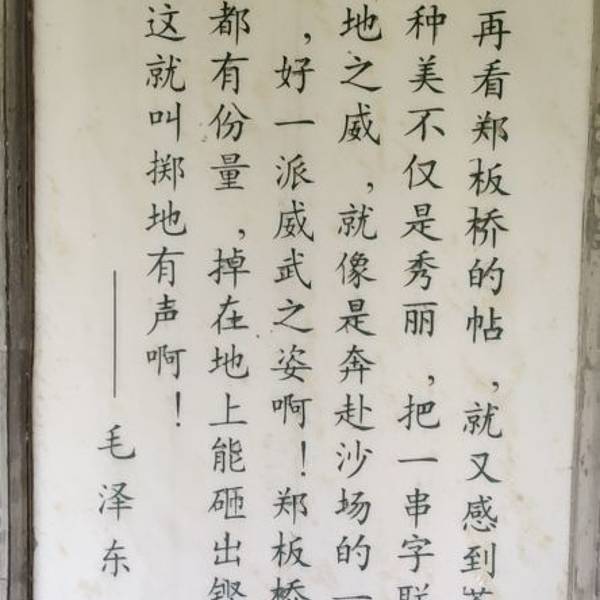 再看郑板桥的帖，就又感到
种美不仅是秀丽，把一串字联
地之威，就像是奔赴沙场的一
，好一派威武之姿啊！郑板桥
都有份量，掉在地上能砸出铿
这就叫掷地有声啊！
——毛泽东